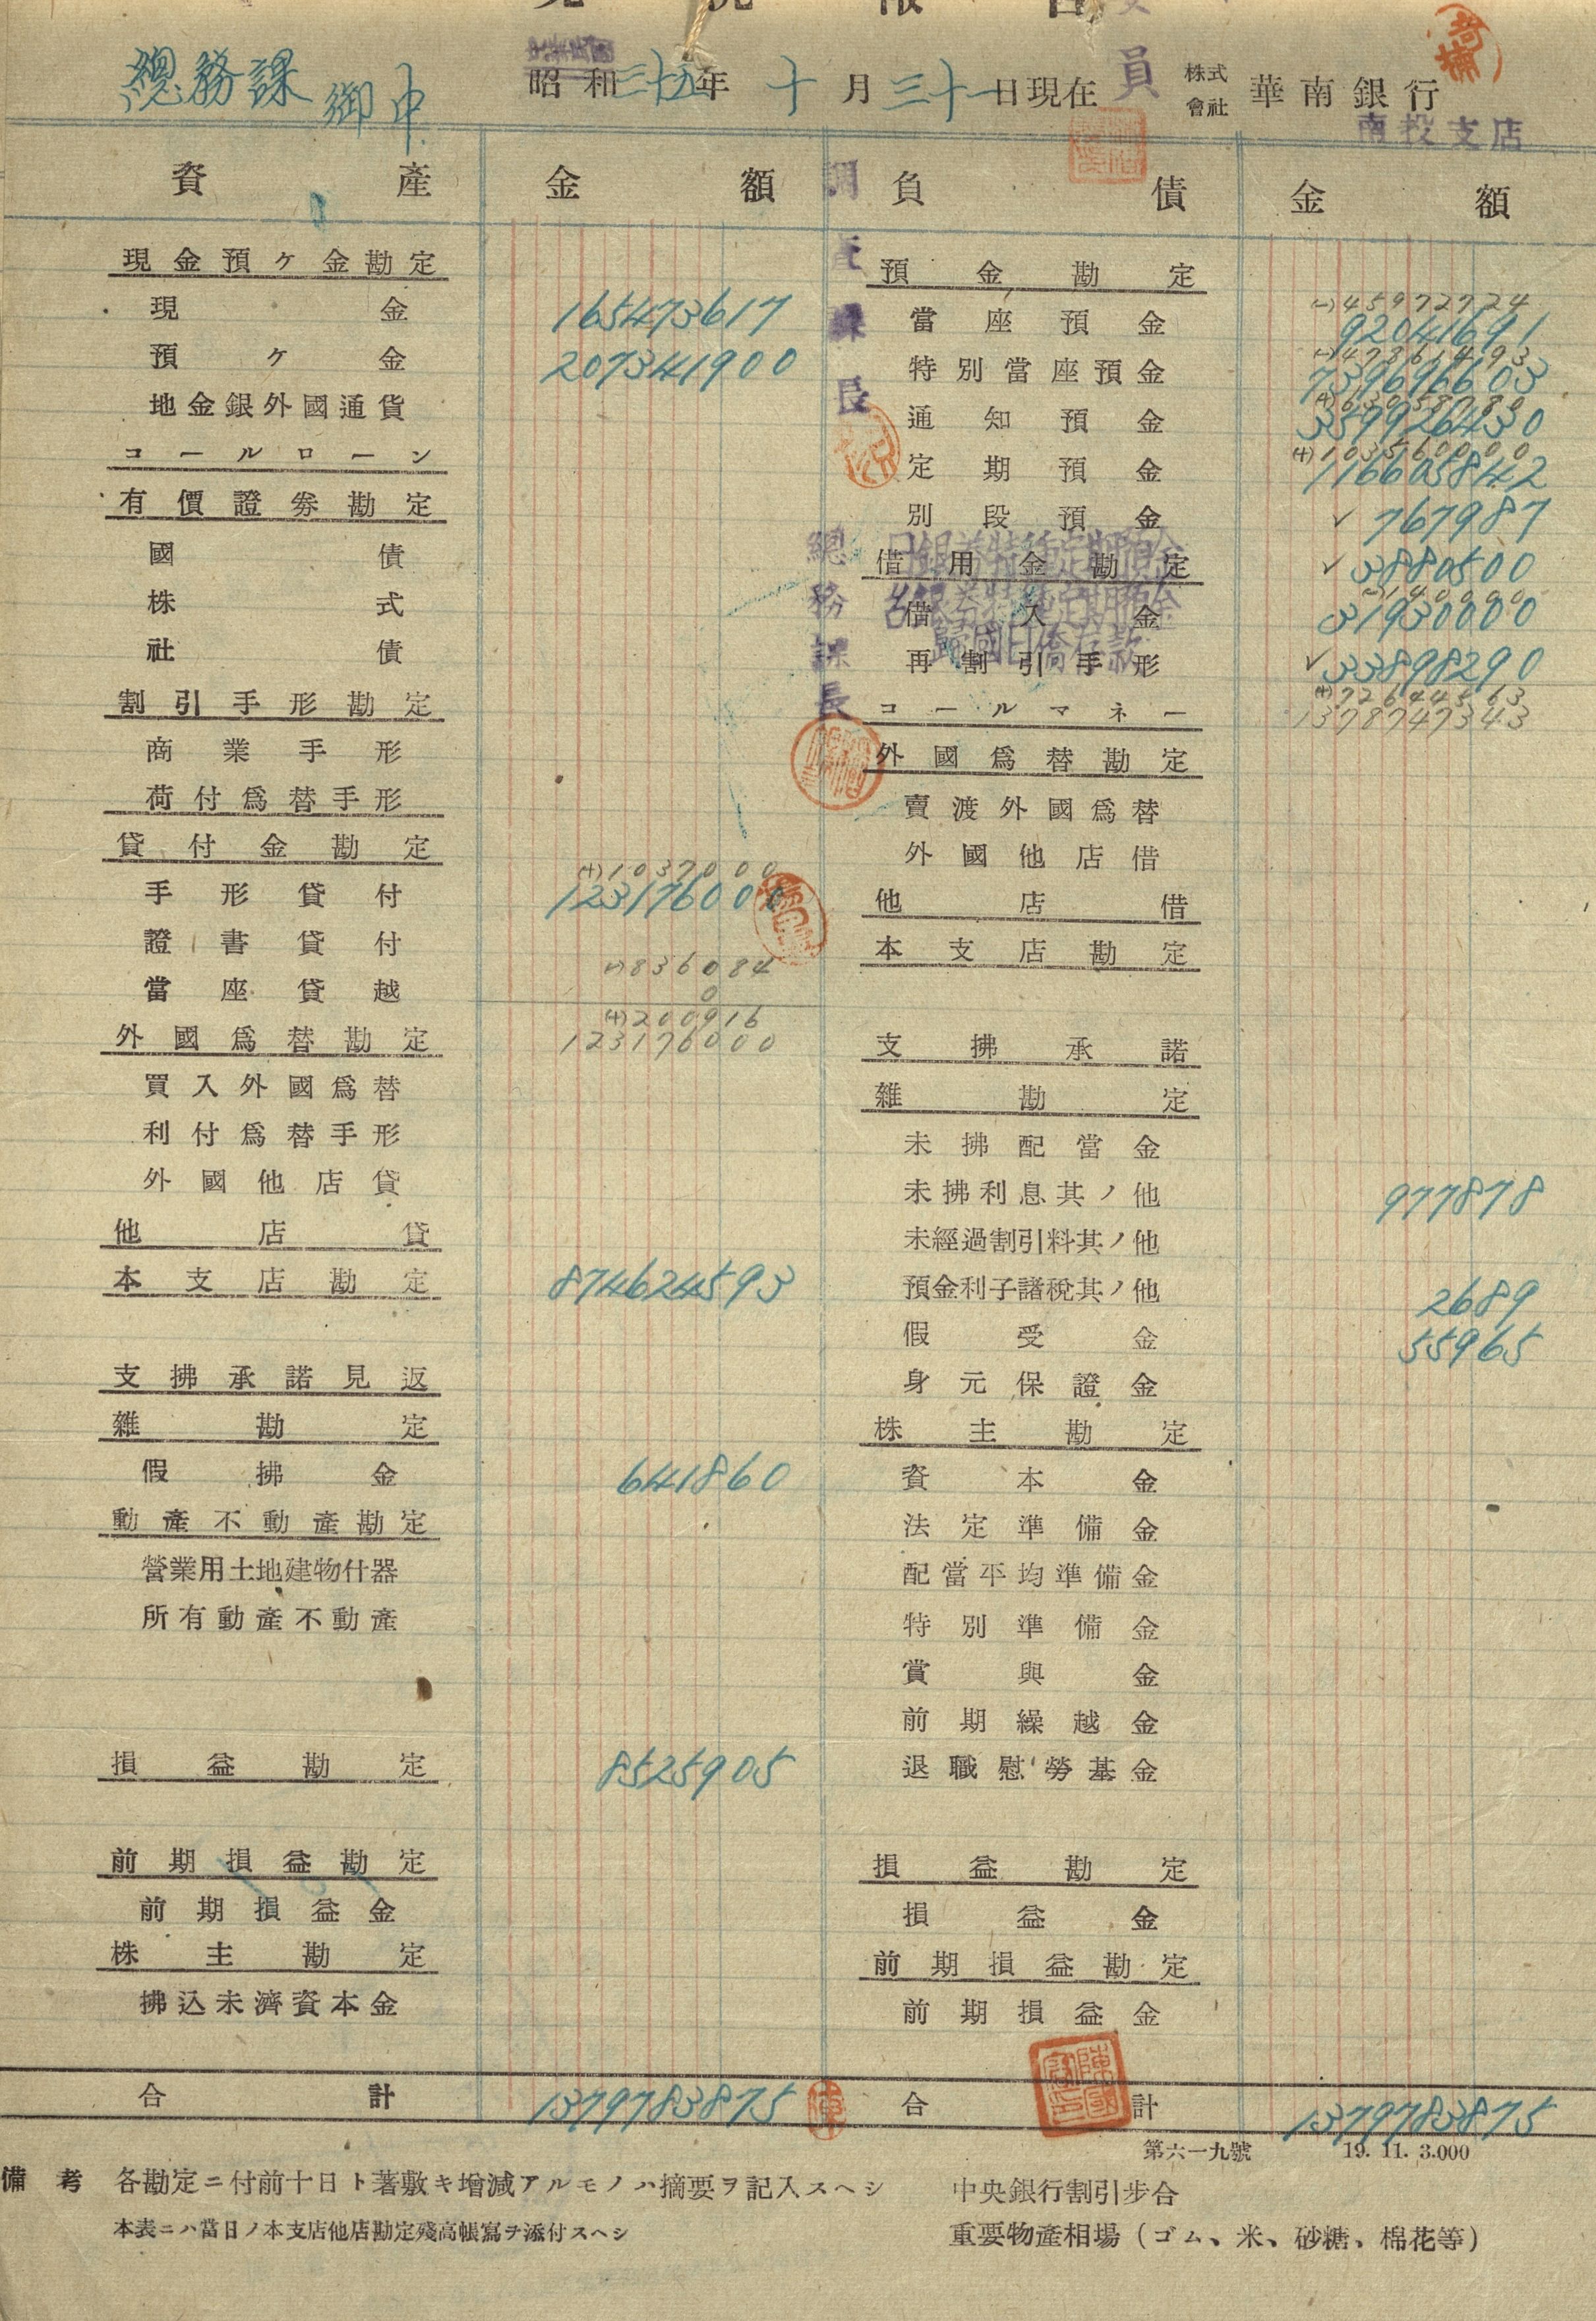 況報告
總務課 御中
昭和三十五年 十月三十一日現在
員
株式會社 華南銀行
南投支店
資產 金額 負債 金額
調查課長
總務課長
現金預ケ金勘定
現金 165473617
預ケ金 207341900
地金銀外國通貨
コールローン
有價證券勘定
國債
株式
社債
割引手形勘定
商業手形
荷付爲替手形
貸付金勘定
(+)1037000
手形貸付 123176000
證書貸付
(-)836084
0
當座貸越
(+)200916
外國爲替勘定 123176000
買入外國爲替
利付爲替手形
外國他店貸
他店貸
本支店勘定 874624593
支拂承諾見返
雜勘定
假拂金 641860
動產不動產勘定
營業用土地建物什器
所有動產不動產
損益勘定 8525905
前期損益勘定
前期損益金
株主勘定
拂込未濟資本金
合計 1379783875
預金勘定
(-)45972724
當座預金 92041691
(-)47861493
特別當座預金 739696603
(+)63058780
通知預金 359926430
(+)103560000
定期預金 116605842
別段預金 ✓767987
日銀券特種定期預金
借用金勘定 ✓3880500
台銀券特種定期預金
(-)140000
借入金 31930000
歸國日僑存款
再割引手形 ✓33898290
(+)72644563
コールマネー 1378747343
外國爲替勘定
賣渡外國爲替
外國他店借
他店借
本支店勘定
支拂承諾
雜勘定
未拂配當金
未拂利息其ノ他 977878
未經過割引料其ノ他
預金利子諸稅其ノ他 2689
假受金 55965
身元保證金
株主勘定
資本金
法定準備金
配當平均準備金
特別準備金
賞與金
前期繰越金
退職慰勞基金
損益勘定
損益金
前期損益勘定
前期損益金
合計 1379783875
第六一九號 19. 11. 3.000
備考 各勘定ニ付前十日ト著敷キ增減アルモノハ摘要ヲ記入スヘシ
本表ニハ當日ノ本支店他店勘定殘高帳寫ヲ添付スヘシ
中央銀行割引步合
重要物產相場(ゴム、米、砂糖、棉花等)